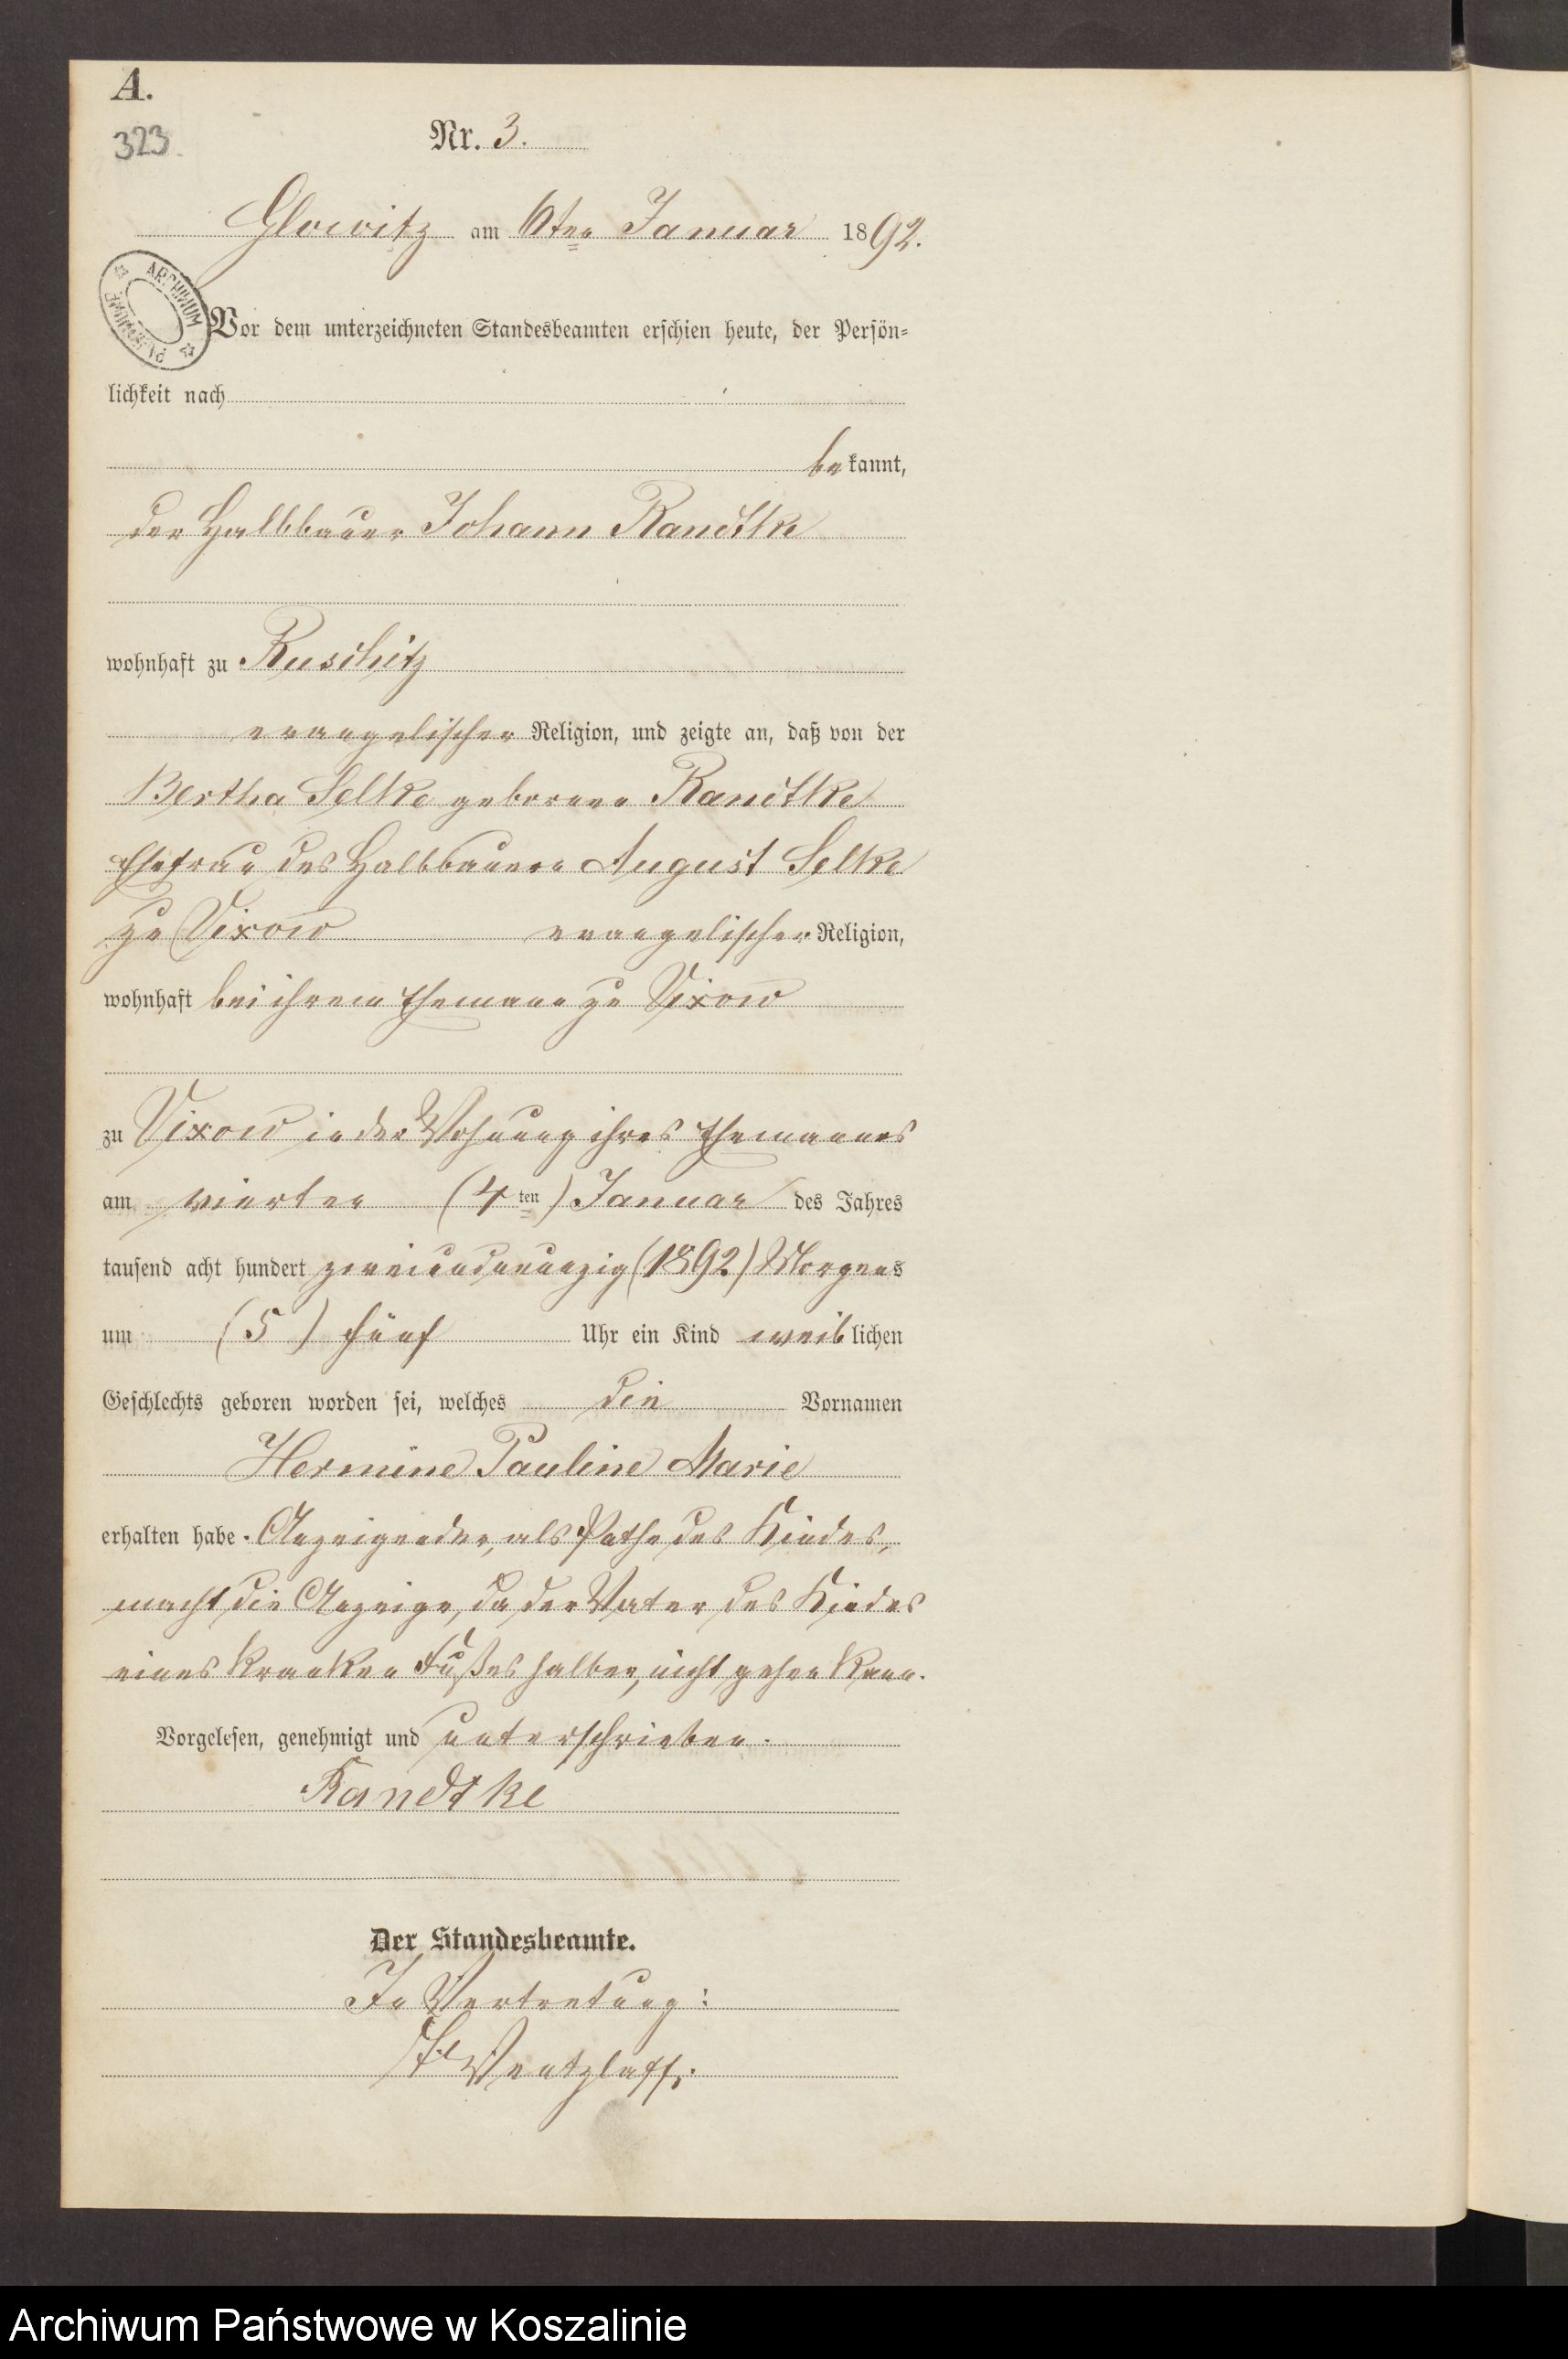 A.
323.
Nr. 3.
Glowitz am 6ten Januar 1892.
ARCHIWUM
Vor dem unterzeichneten Standesbeamten erschien heute, der Persön-
lichkeit nach
bekannt,
der Halbbauer Johann Randtke
wohnhaft zu Ruschitz
evangelischer Religion, und zeigte an, daß von der
Bertha Selke geborene Randtke
Ehefrau des Halbbauern August Selke
zu Vixow evangelischer Religion,
wohnhaft bei ihrem Ehemann zu Vixow
zu Vixow in der Wohnung ihres Ehemannes
am vierten (4ten) Januar des Jahres
tausend acht hundert zweiundneunzig (1892) Morgens
um (5) fünf Uhr ein Kind weiblichen
Geschlechts geboren worden sei, welches die Vornamen
Hermine Pauline Marie
erhalten habe. Anzeigender, als Pathe des Kindes,
macht die Anzeige, da der Vater des Kindes
eines kranken Fußes halber, nicht gehen kann.
Vorgelesen, genehmigt und unterschrieben.
Randtke
Der Standesbeamte.
In Vertretung:
Wentzlaff.
Archiwum Państwowe w Koszalinie